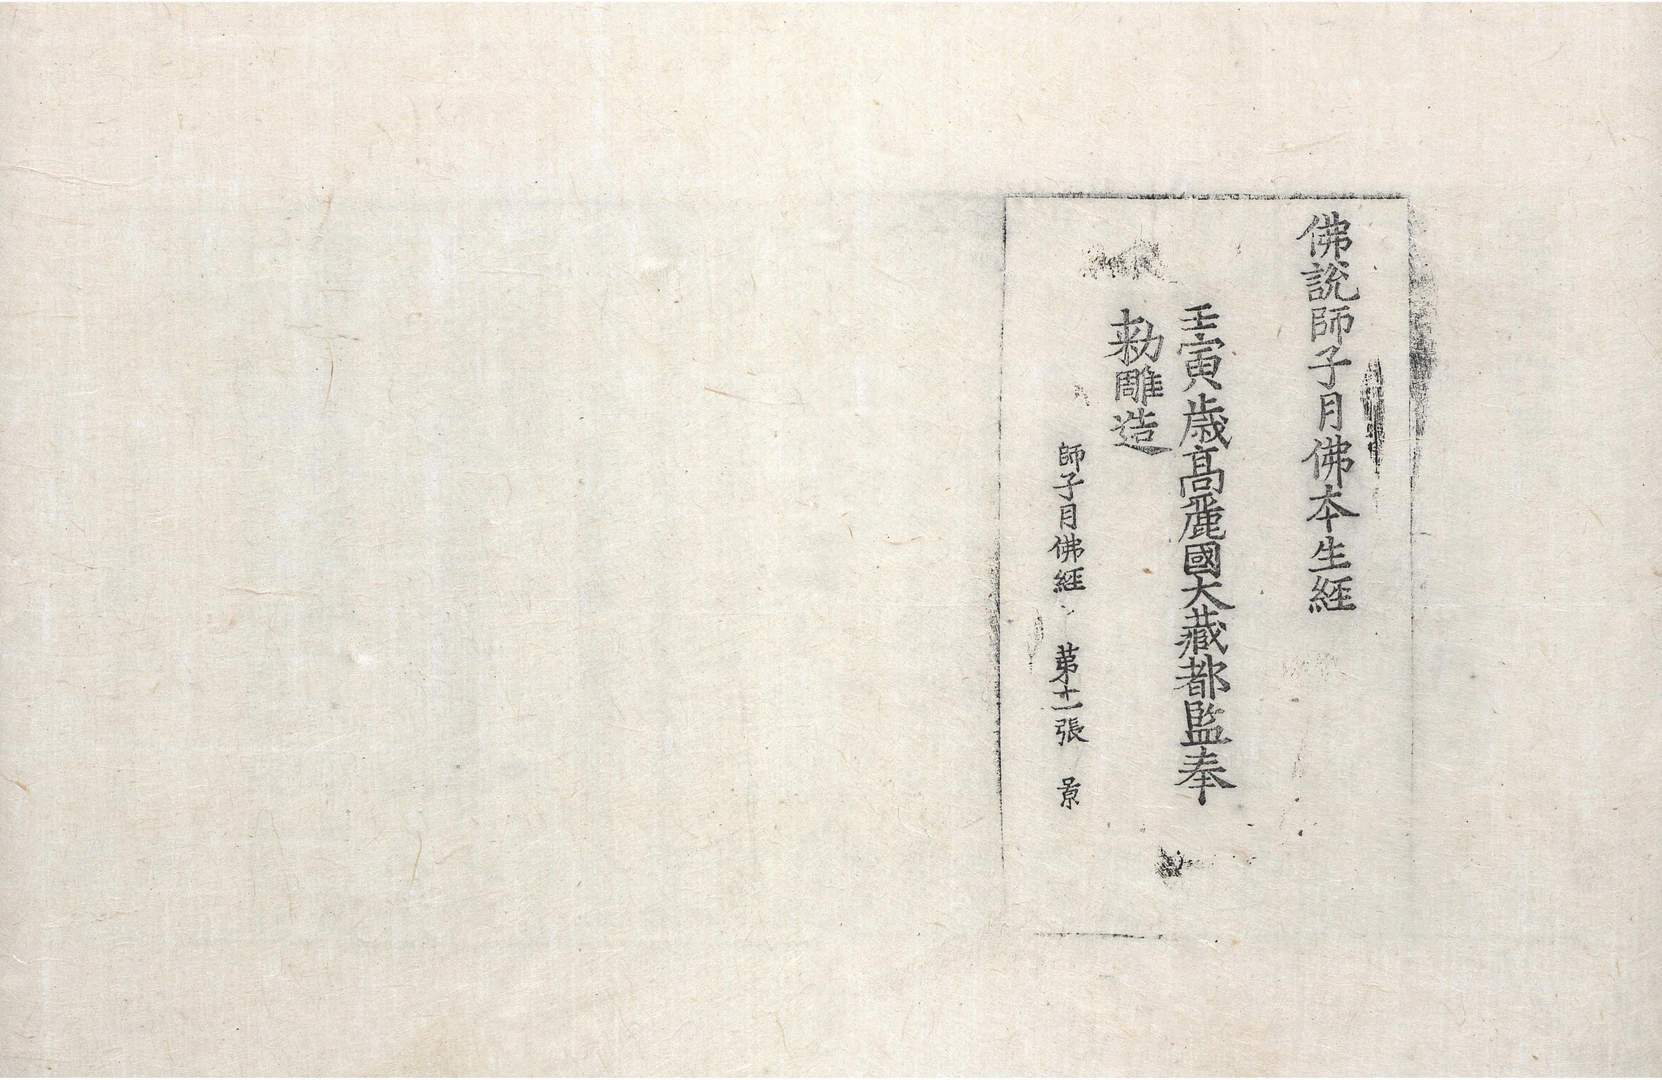 佛說師子月佛本生經
壬寅歲高麗國大藏都監奉
勅雕造
師子月佛經 第十一張 景